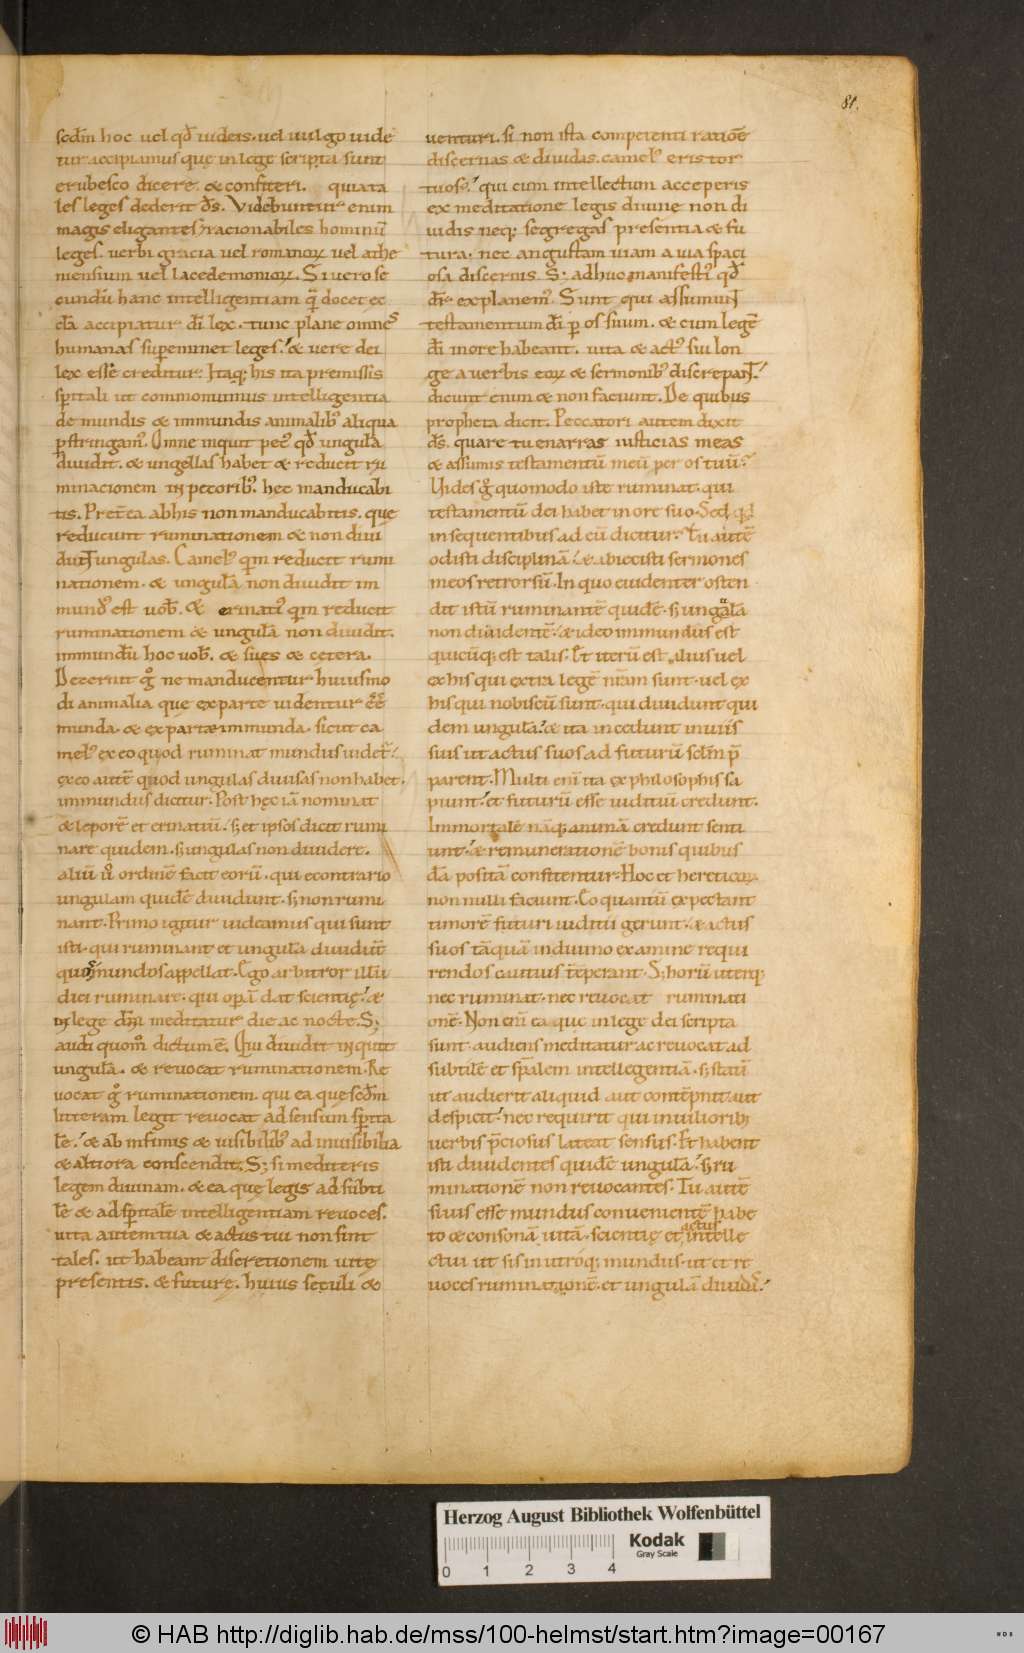 81.
scd̄m hoc uel qd̄ iudeis. uel uulgo uide
tur accipiamus quę in lege scripta sunt
erubesco dicere. & confiteri. quia ta
les leges dederit d̄s. Videbuntur enim
magis eligantes & racionabiles hominū
leges. uerbi gracia uel romanoꝝ uel athe
niensium uel lacedemonioꝝ. Si uero se
cundū hanc intelligentiam qͣ̄ docet ec
cl̄a accipiatur dī lex. tunc plane omnes
humanas supereminet leges. & uere dei
lex esse creditur. Itaq; his ita premissis
spiritali ut commonuimus intelligentia
de mundis & inmundis animalib; aliqua
ꝑstringam̄. Omne inquit pec; qd̄ ungulā
diuidit. & ungellas habet & reducit ru
minacionem in pecorib;. hec manducabi
tis. Pret̄ea ab his non manducabitis. quę
reducunt ruminationem & non diui
dunt ungulas. Camel; qm̄ reducit rumi
nationem. & ungulā non diuidit im
mund; est uob̄. & erinati; qm̄ reducit
ruminationem & ungulā non diuidit.
immundū hoc uob̄. & sues & cetera.
Decernit gͦ ne manducentur huiusmo
di animalia que ex parte uidentur ēē
munda. & ex parte immunda. sicut ca
mel; ex eo quod ruminat mundus uidet̄.
ex eo autē quod ungulas diuisas non habet.
immundus dicitur. Post hęc iā nominat
& leporē et erinatiū. sꝫ et ipsos dicit rumi
nare quidem. sꝫ ungulas non diuidere.
aliū u̅ ordinē facit eorū. qui econtrario
ungulam quidē diuidunt. sꝫ non rumi
nant. Primo igitur uideamus qui sunt
isti. qui ruminant et ungulā diuidunt
quos mundos appellat. Ego arbitror illū
dici ruminare. qui operā dat scientię. &
in lege dn̄i meditatur die ac nocte. Sꝫ
audi quom̄ dictum ē. Qui diuidit inquit
ungulā. & reuocat ruminationem. Re
uocat gͦ ruminationem. qui ea que scd̄m
litteram legit reuocat ad sensum sp̄ita
lē. & ab infimis & uisibilib; ad inuisibilia
& altiora conscendit. Sꝫ si mediteris
legem diuinam. & ea quę legis ad subti
lē & ad sp̄italē intelligentiam reuoces.
uita autem tua & actus tui non sint
tales. ut habeant discretionem uitę
presentis. & futurę. huius seculi &
uenturi. si non ista competenti ratiōe
discernas & diuidas. camel; eris tor
tuos;. qui cum intellectum acceperis
ex meditatione legis diuine non di
uidis neq; segregas presentia & fu
tura. nec angustam uiam a uia spaci
osa discernis. Sꝫ adhuc manifesti; qd̄
dr̄ explanem̄. Sunt qui assumunt
testamentum dī ꝑ os suum. & cum legē
dī in ore habeant. uita & act; sui lon
ge a uerbis eoꝝ & sermonib; discrepant.
dicunt enim & non faciunt. De quibus
propheta dicit. Peccatori autem dixit
d̄s. quare tu enarras iusticias meas
& assumis testamentū meū per os tuū.
Uides gͦ quomodo iste ruminat. qui
testamentū dei habet in ore suo. Sed qd̄
in sequentibus ad eū dicitur. Tu autē
odisti disciplinā. & abiecisti sermones
meos retrorsū. In quo euidenter osten
dit istū ruminantē quidē. sꝫ ungulā
non diuidentē. & ideo immundus est
quicūq; est talis. Et iterū est alius uel
ex his qui extra legē nr̄am sunt. uel ex
his qui nobiscū sunt. qui diuidunt qui
dem ungulā. & ita incedunt in uiis
suis ut actus suos ad futurū scd̄m p̄
parent. Multi enī ita ex philosophis sa
piunt. et futurū esse iuditiū credunt.
Immortalē nāq; animā credunt senti
unt. & remunerationē bonis quibus
dā positā confitentur. Hoc et hereticoꝝ
non nulli faciunt. & quantū expectant
timorē futuri iuditii gerunt. & actus
suos tāquā in diuino examine requi
rendos cautius tēperant. Sꝫ horū uterq;
nec ruminat. nec reuocat ruminati
onē. Non enī ea que in lege dei scripta
sunt. audiens meditatur ac reuocat ad
subtilē et sp̄alem intellegentiā. sꝫ statī
ut audierit aliquid aut contēpnit aut
despicit. nec requirit qui in uiliorib;
uerbis p̄ciosus lateat sensus. Et habent
isti diuidentes quidē ungulā. sꝫ ru
minationē non reuocantes. Tu autē
si uis esse mundus conuenientē habe
to & consonā uitā. scientię et actus intelle
ctui ut sis in utroq; mundus. ut et re
uoces ruminationē. et ungulā diuidas.
Herzog August Bibliothek Wolfenbüttel
Kodak
Gray Scale
0 1 2 3 4
© HAB http://diglib.hab.de/mss/100-helmst/start.htm?image=00167